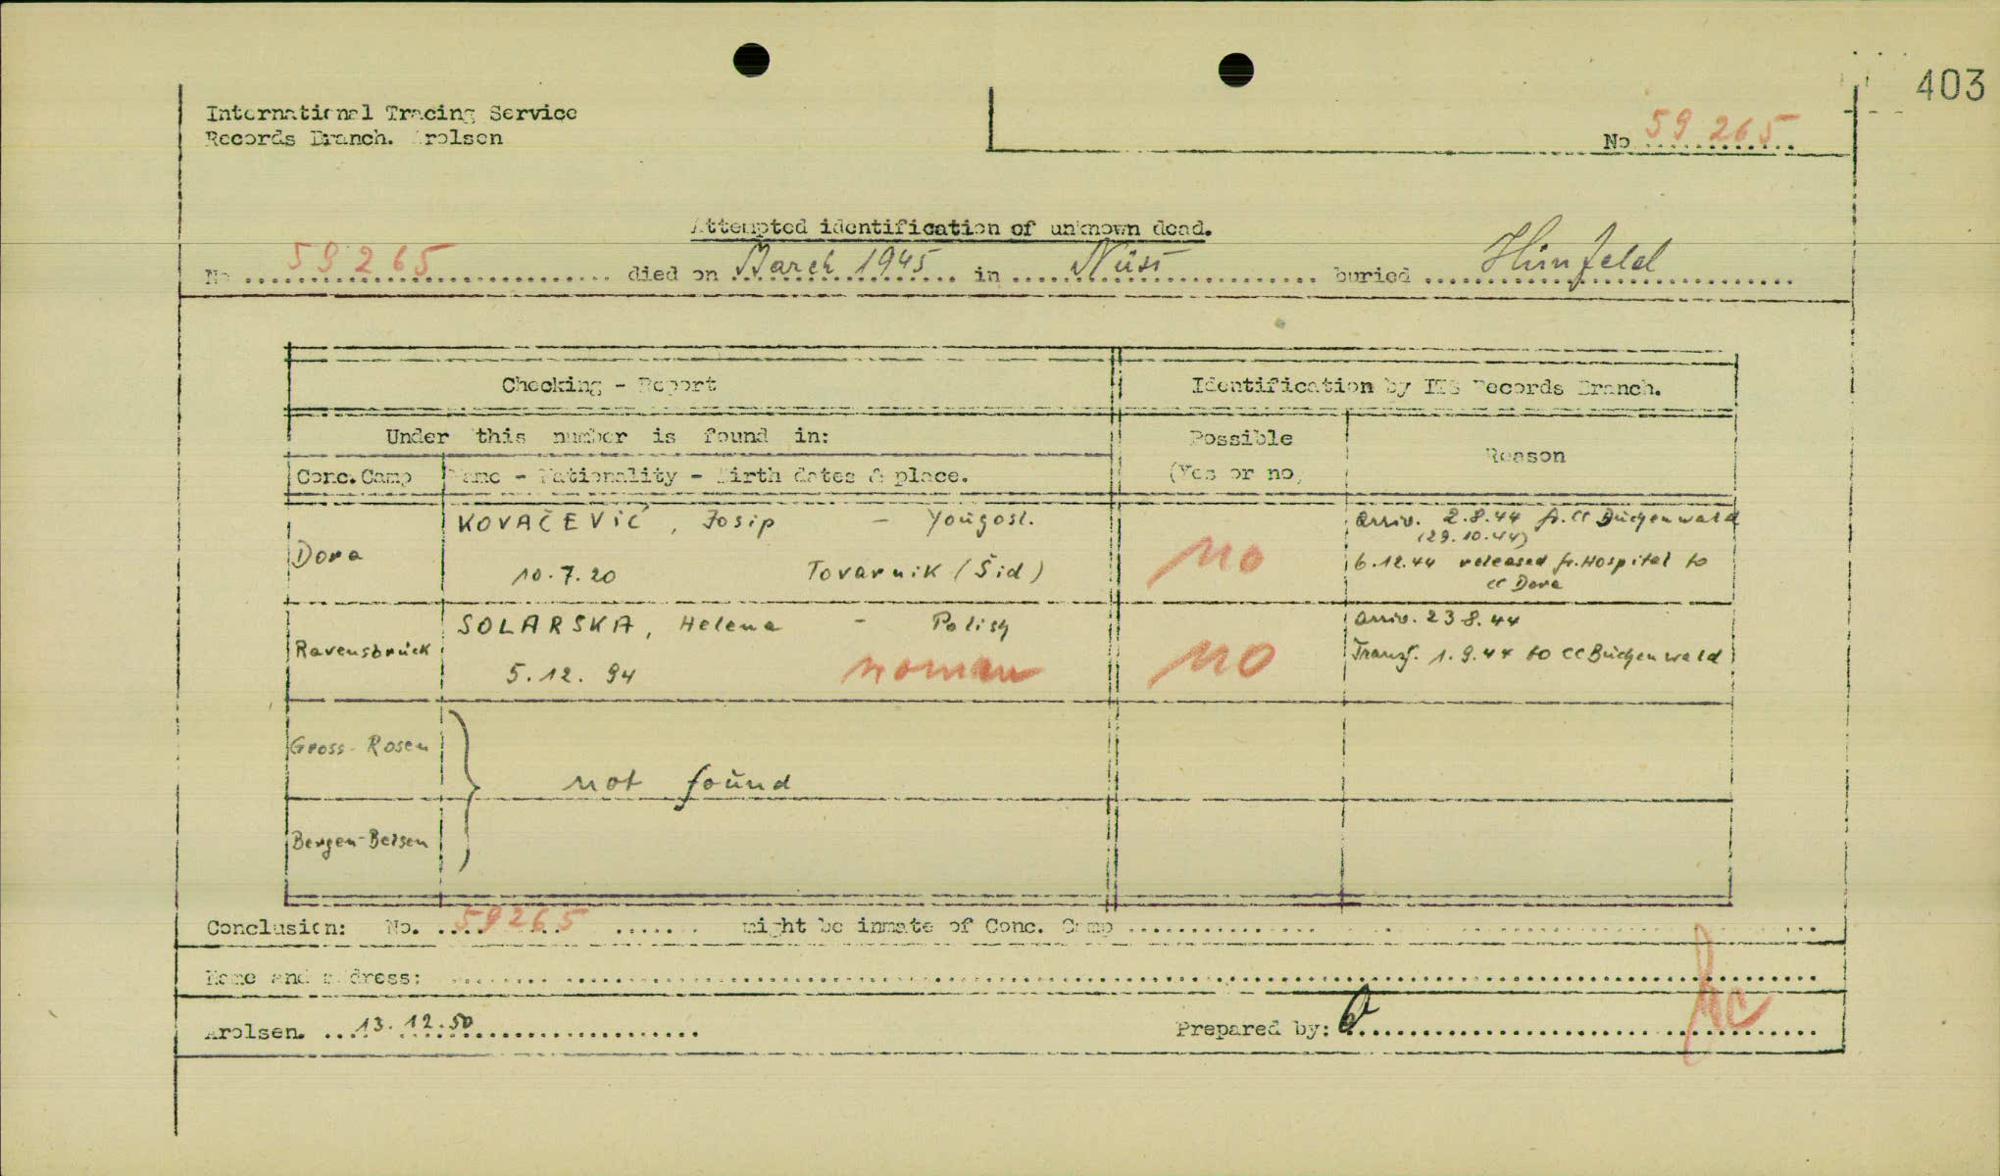 403
International Tracing Service
Records Branch. Arolsen
No 59 265
Attempted identification of unknown dead.
No 59265 died on March 1945 in Nüst buried Hünfeld
Checking - Report Identification by ITS Records Branch.
Under this number is found in: Possible Reason
Conc.Camp Name - Nationality - Birth dates & place. (Yes or no)
KOVAČEVIĆ, Josip - Yougosl. arriv. 2.8.44 fr. CC Buchenwald
(29.10.44)
Dora 10.7.20 Tovarnik (Šid) no 6.12.44 released fr. Hospital to
CC Dora
SOLARSKA, Helena - Polish arriv. 23.8.44
Ravensbrück 5.12.94 woman no Transf. 1.9.44 to CC Buchenwald
Gross-Rosen
not found
Bergen-Belsen
Conclusion: No. 59265 might be inmate of Conc. Camp
Name and address:
Arolsen. 13.12.50 Prepared by: